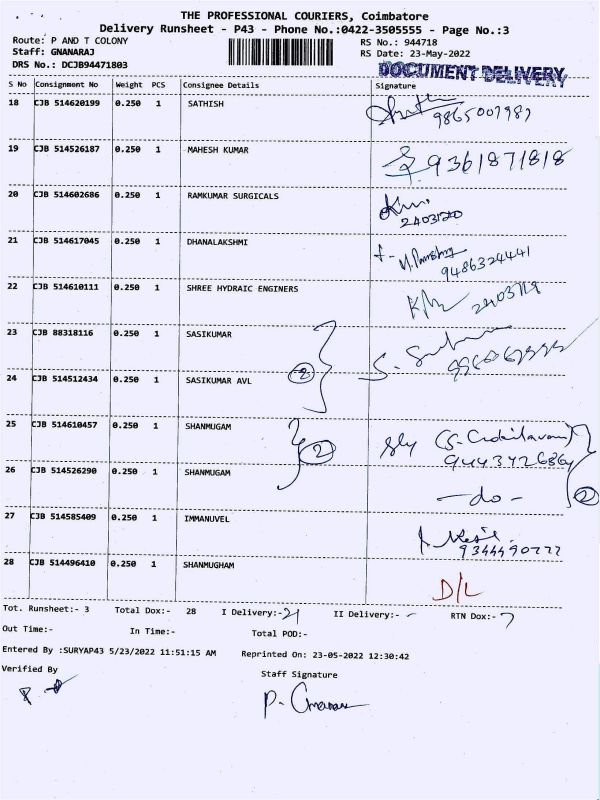 THE PROFESSIONAL COURIERS, Coimbatore
Delivery Runsheet - P43 - Phone No.:0422-3505555 - Page No.:3
Route: P AND T COLONY RS No.: 944718
Staff: GNANARAJ RS Date: 23-May-2022
DRS No.: DCJB94471803 DOCUMENT DELIVERY
S No Consignment No Weight PCS Consignee Details Signature
18 CJB 514620199 0.250 1 SATHISH
19 CJB 514526187 0.250 1 MAHESH KUMAR 9361871818
20 CJB 514602686 0.250 1 RAMKUMAR SURGICALS
21 CJB 514617045 0.250 1 DHANALAKSHMI
9486324441
22 CJB 514610111 0.250 1 SHREE HYDRAIC ENGINERS
23 CJB 88318116 0.250 1 SASIKUMAR
24 CJB 514512434 0.250 1 SASIKUMAR AVL 2
25 CJB 514610457 0.250 1 SHANMUGAM
2
26 CJB 514526290 0.250 1 SHANMUGAM -do- 2
27 CJB 514585409 0.250 1 IMMANUVEL
28 CJB 514496410 0.250 1 SHANMUGHAM
D/L
Tot. Runsheet:- 3 Total Dox:- 28 I Delivery:-21 II Delivery:- - RTN Dox:- 7
Out Time:- In Time:- Total POD:-
Entered By :SURYAP43 5/23/2022 11:51:15 AM Reprinted On: 23-05-2022 12:30:42
Verified By Staff Signature